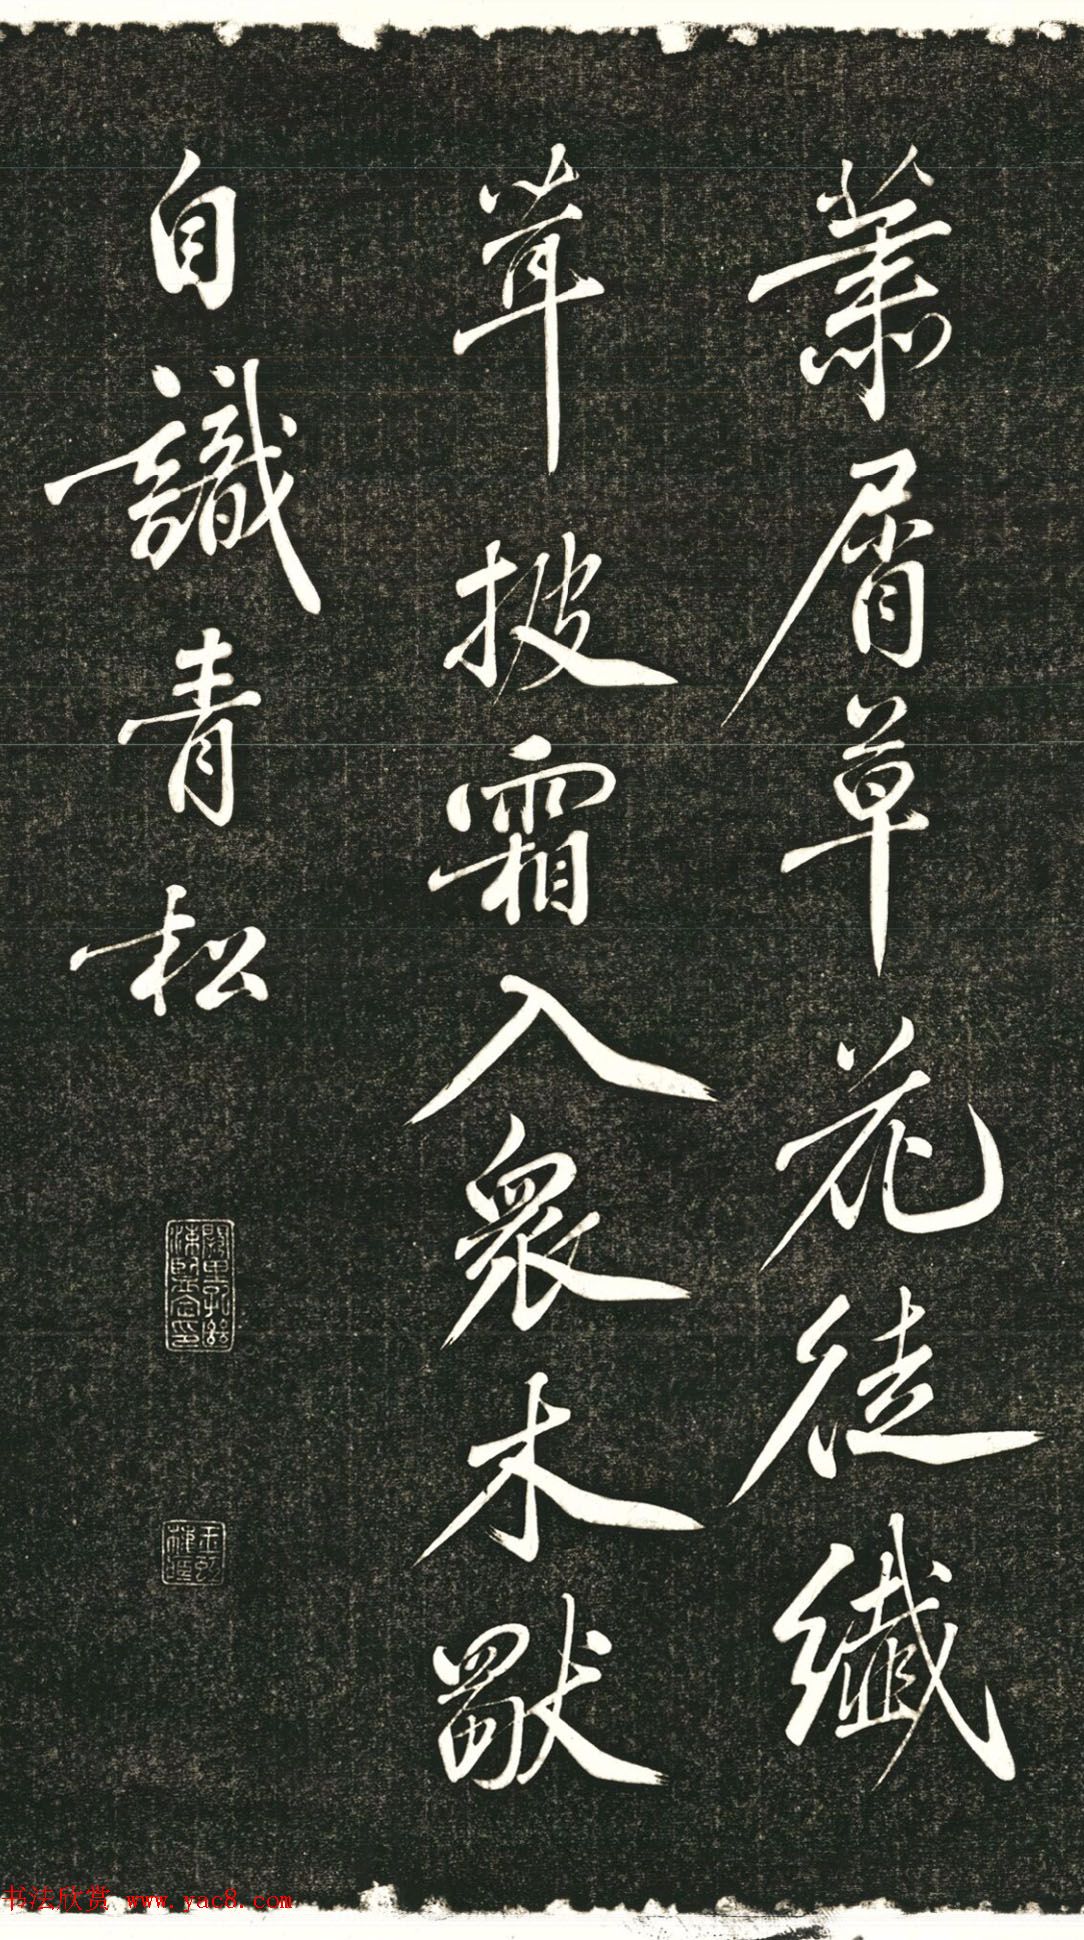 蕭屑草花徒纖
茸披霜入衆木獨
自識青松
书法欣赏 www.yac8.com